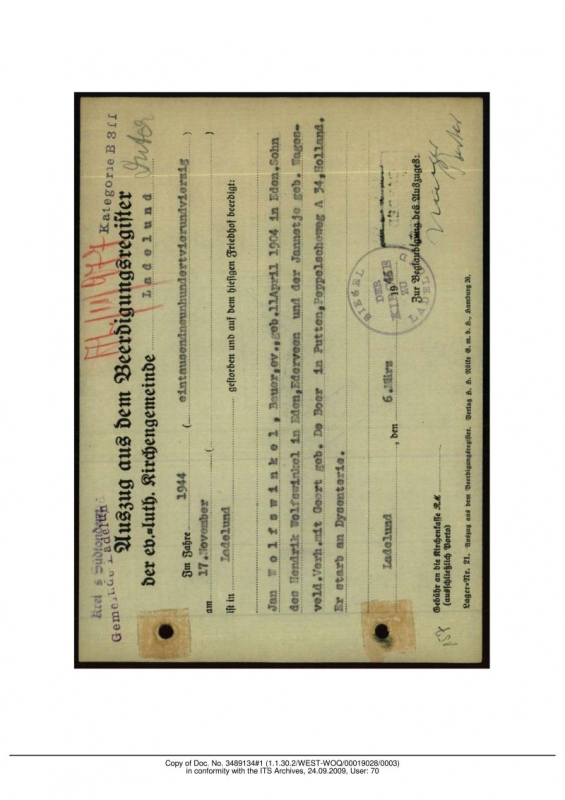 Kreis Südtondern
Gemeinde Ladelund
Kategorie B 3 ff
Auszug aus dem Beerdigungsregister
der ev.=luth. Kirchengemeinde Ladelund
Im Jahre 1944 ( eintausendneunhundertvierundvierzig )
am 17.November ( )
ist in Ladelund gestorben und auf dem hiesigen Friedhof beerdigt:
Jan Wolfswinkel, Bauer,ev.,geb.11April 1904 in Eden.Sohn
des Hendrik Wolfswinkel in Eden,Ederveen und der Jannetje geb. Wages-
veld.Verh.mit Geert geb. De Boer in Putten,Poppelscheweg A 34,Holland.
Er starb an Dysenterie.
Ladelund, den 6.März 19
SIEGEL DER KIRCHE ZU LADELUND
Zur Beglaubigung des Auszuges:
Gebühr an die Kirchenkasse R.M.
(ausschließlich Porto)
Lager=Nr. 21. Auszug aus dem Beerdigungsregister. Verlag H. H. Nölke G. m. b. H., Hamburg 30.
Copy of Doc. No. 3489134#1 (1.1.30.2/WEST-WOQ/00019028/0003)
in conformity with the ITS Archives, 24.09.2009, User: 70